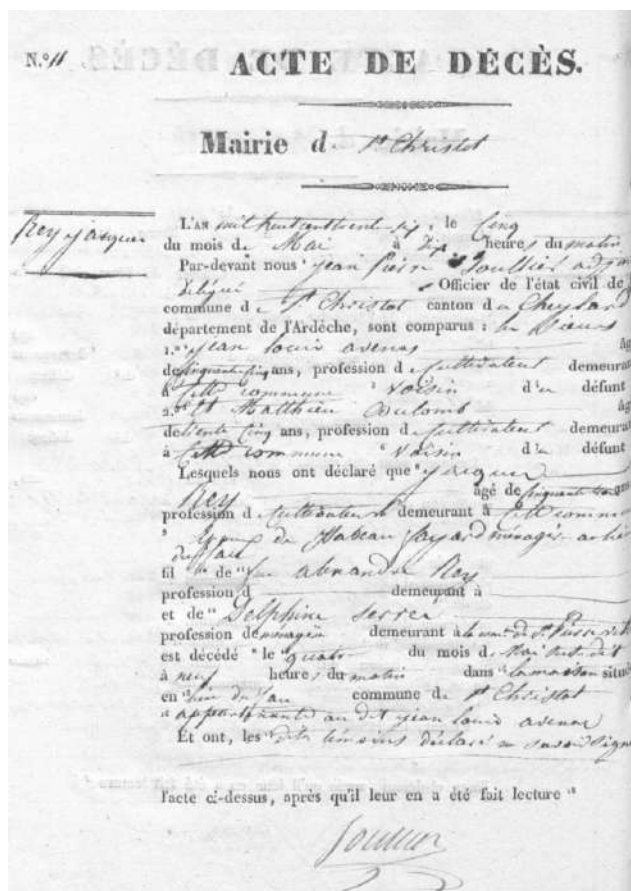 N.º 11 ACTE DE DÉCÈS.
Mairie de St Christol
Rey Jacques
L'AN mil huit cent trente six, le Cinq
du mois de Mai à dix heures du matin
Par-devant nous Jean Pierre Soullier adjoint
délégué Officier de l'état civil de
commune de St Christol canton du Cheylard
département de l'Ardèche, sont comparus : les Sieurs
1.º Jean Louis avenas âg
de cinquante cinq ans, profession de cultivateur demeurant
à cette commune voisin du défunt
2.º et Matthieu Coulomb âg
de trente cinq ans, profession de cultivateur demeurant
à cette commune voisin du défunt
Lesquels nous ont déclaré que Jacques
Rey âgé de cinquante ans
profession de cultivateur demeurant à cette commune
Epoux de Isabeau fayard ménagère
fils de feu alexandre Rey
profession d demeurant à
et de Delphine serre
profession de ménagère demeurant à la comne de St Pierre
est décédé le quatre du mois de Mai susdit
à neuf heures du matin dans la maison situé
en lieu du commune de St Christol
appartenante au dit Jean Louis avenas
Et ont, les dits témoins déclaré ne savoir signer
l'acte ci-dessus, après qu'il leur en a été fait lecture
Soullier